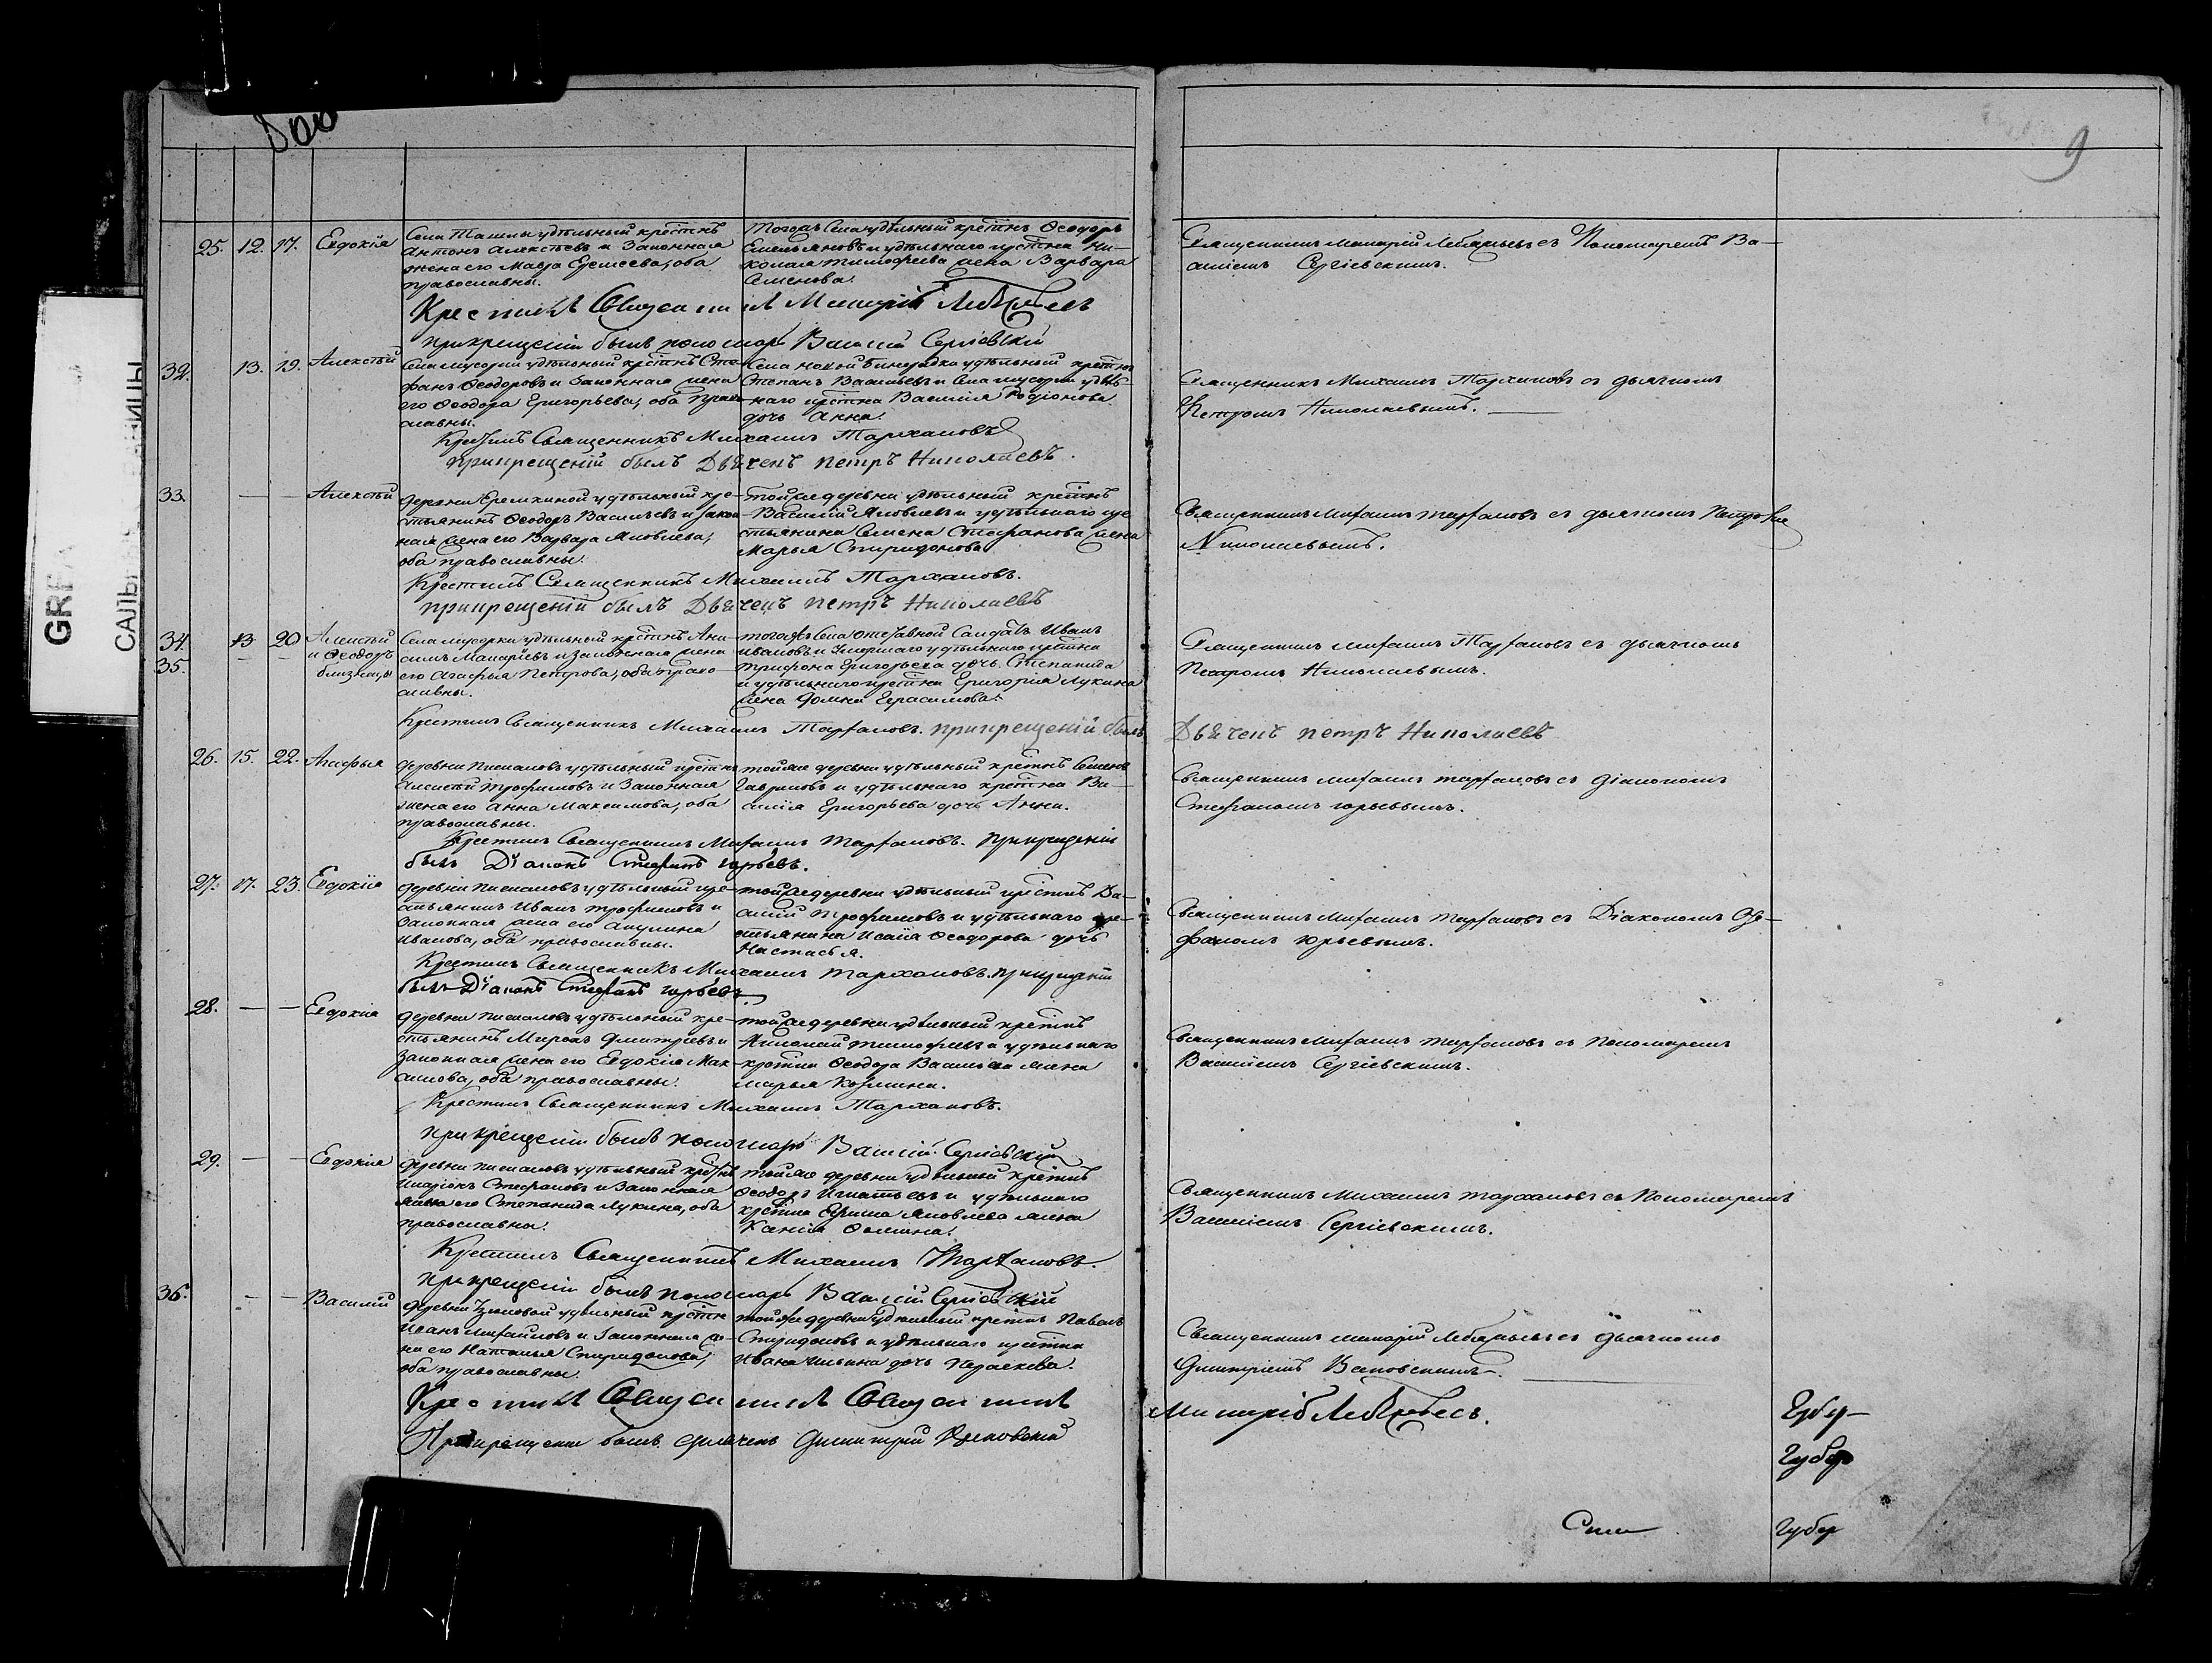 9
25. 12. 17. Евдокія
Села Ташлы удѣльный крестнъ
Антонъ Алексѣевъ и Законная
жена его Мавра Еремеева, оба
православны.
тогожъ Села удѣльный крестнъ Ѳеодоръ
Емельяновъ и удѣльнаго крестна Ни-
колая Тимофеева жена Варвара
Семенова.
Священникъ Макарій Лебедевъ съ Пономаремъ Ва-
силіемъ Сергіевскимъ.
Крестилъ Священникъ Макарій
при крещеніи былъ пономарь Василій Сергіевскій
32. 13. 19. Алексѣй
Села мусорки удѣльный крестнъ Сте-
фанъ Ѳеодоровъ и Законная жена
его Ѳеодора Григорьева, оба право-
славны.
Села новой Бинарадки удѣльный крестнъ
Степанъ Васильевъ и Села мусорки удѣль-
наго крестна Василія Родіонова
дочь Анна.
Священникъ Михаилъ Тархановъ съ дьячкомъ
Петромъ Николаевымъ.
Крестилъ Священникъ Михаилъ Тархановъ
при крещеніи былъ Дьячекъ Петръ Николаевъ.
33. — — Алексѣй
деревни Еремкиной удѣльный кре-
стьянинъ Ѳеодоръ Васильевъ и закон-
ная жена его Варвара Яковлева,
оба православны.
той же деревни удѣльный крестнъ
Василій Яковлевъ и удѣльнаго кре
стьянина Семена Стефанова жена
Марья Спиридонова
Священникъ Михаилъ Тархановъ съ дьячкомъ Петромъ
Николаевымъ.
Крестилъ Священникъ Михаилъ Тархановъ.
при крещеніи былъ Дьячекъ Петръ Николаевъ
34. 13 20 Алексѣй
35. — — и Ѳеодоръ
близнецы
Села мусорки удѣльный крестнъ Ани-
симъ Макарьевъ и законная жена
его Агафья Петрова, оба право-
славны.
тогожъ Села отставной Солдатъ Иванъ
Ивановъ и умершаго удѣльнаго крестна
Трифона Григорьева дочь Степанида
и удѣльнаго крестна Григорія Лукина
жена Домна Герасимова.
Священникъ Михаилъ Тархановъ съ дьячкомъ
Петромъ Николаевымъ.
Крестилъ Священникъ Михаилъ Тархановъ. при крещеніи былъ Дьячекъ Петръ Николаевъ
26. 15. 22. Агафья
деревни удѣльный крестнъ
Алексѣй Трофимовъ и Законная
жена его Анна Максимова, оба
православны.
той же деревни удѣльный крестнъ Семенъ
Гавриловъ и удѣльнаго крестна Ва-
силія Григорьева дочь Анна.
Священникъ Михаилъ Тархановъ съ діакономъ
Стефаномъ Юрьевымъ.
Крестилъ Священникъ Михаилъ Тархановъ. При крещеніи
былъ Діаконъ Стефанъ Юрьевъ.
27. 17. 23. Евдокія
деревни удѣльный кре-
стьянинъ Иванъ Трофимовъ и
Законная жена его Акулина
Иванова, оба православны.
той же деревни удѣльный крестнъ Ва-
силій Трофимовъ и удѣльнаго кре-
стьянина Исаіи Ѳеодорова дочь
Настасья.
Священникъ Михаилъ Тархановъ съ Діакономъ Сте-
фаномъ Юрьевымъ.
Крестилъ Священникъ Михаилъ Тархановъ. При крещеніи
былъ Діаконъ Стефанъ Юрьевъ
28. — — Евдокія
деревни удѣльный кре-
стьянинъ Миронъ Дмитріевъ и
Законная жена его Евдокія Мак-
симова, оба православны.
той же деревни удѣльный крестнъ
Николай Тимофеевъ и удѣльнаго
крестна Ѳеодора Васильева жена
Марья Козмина.
Священникъ Михаилъ Тархановъ съ Пономаремъ
Василіемъ Сергіевскимъ.
Крестилъ Священникъ Михаилъ Тархановъ.
при крещеніи былъ пономарь Василій Сергіевскій
29. — — Евдокія
деревни удѣльный крестнъ
Иларіонъ Стефановъ и Законная
жена его Степанида Лукина, оба
православны.
той же деревни удѣльный крестнъ
Ѳеодоръ Игнатьевъ и удѣльнаго
крестна Яковлева жена
Ксенія Фомина.
Священникъ Михаилъ Тархановъ съ Пономаремъ
Василіемъ Сергіевскимъ.
Крестилъ Священникъ Михаилъ Тархановъ.
при крещеніи былъ пономарь Василій Сергіевскій
36. — — Василій
деревни Узюковой удѣльный крестнъ
Иванъ Михайловъ и Законная же-
на его Наталья Спиридонова,
оба православны.
той же деревни удѣльный крестнъ Павелъ
Спиридоновъ и удѣльнаго крестна
Ивана Ильина дочь Параскева.
Священникъ Макарій Лебедевъ съ дьячкомъ
Димитріемъ
Крестилъ Священникъ Священникъ Макарій
При крещеніи былъ дьячекъ Димитрій
Губер
Губер